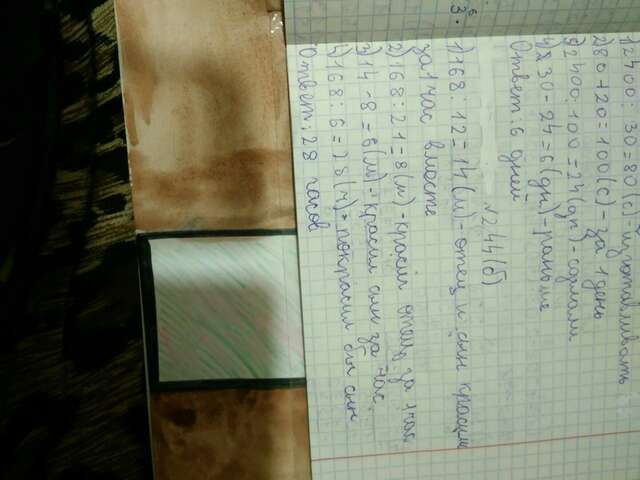 12400 : 30 = 80 (с) - изготавливать
2) 80 + 20 = 100 (с) - за 1 день
3) 2400 : 100 = 24 (дн) - сделали
4) 30 - 24 = 6 (дн) - раньше
Ответ 6 дней
№244(б)
1) 168 : 12 = 14 (м) - отец и сын красили
за 1 час вместе
2) 168 : 21 = 8 (м) - красил отец за 1 час
3) 14 - 8 = 6 (м) - красил сын за час.
4) 168 : 6 = 28 (ч) - покрасил бы сын
Ответ: 28 часов